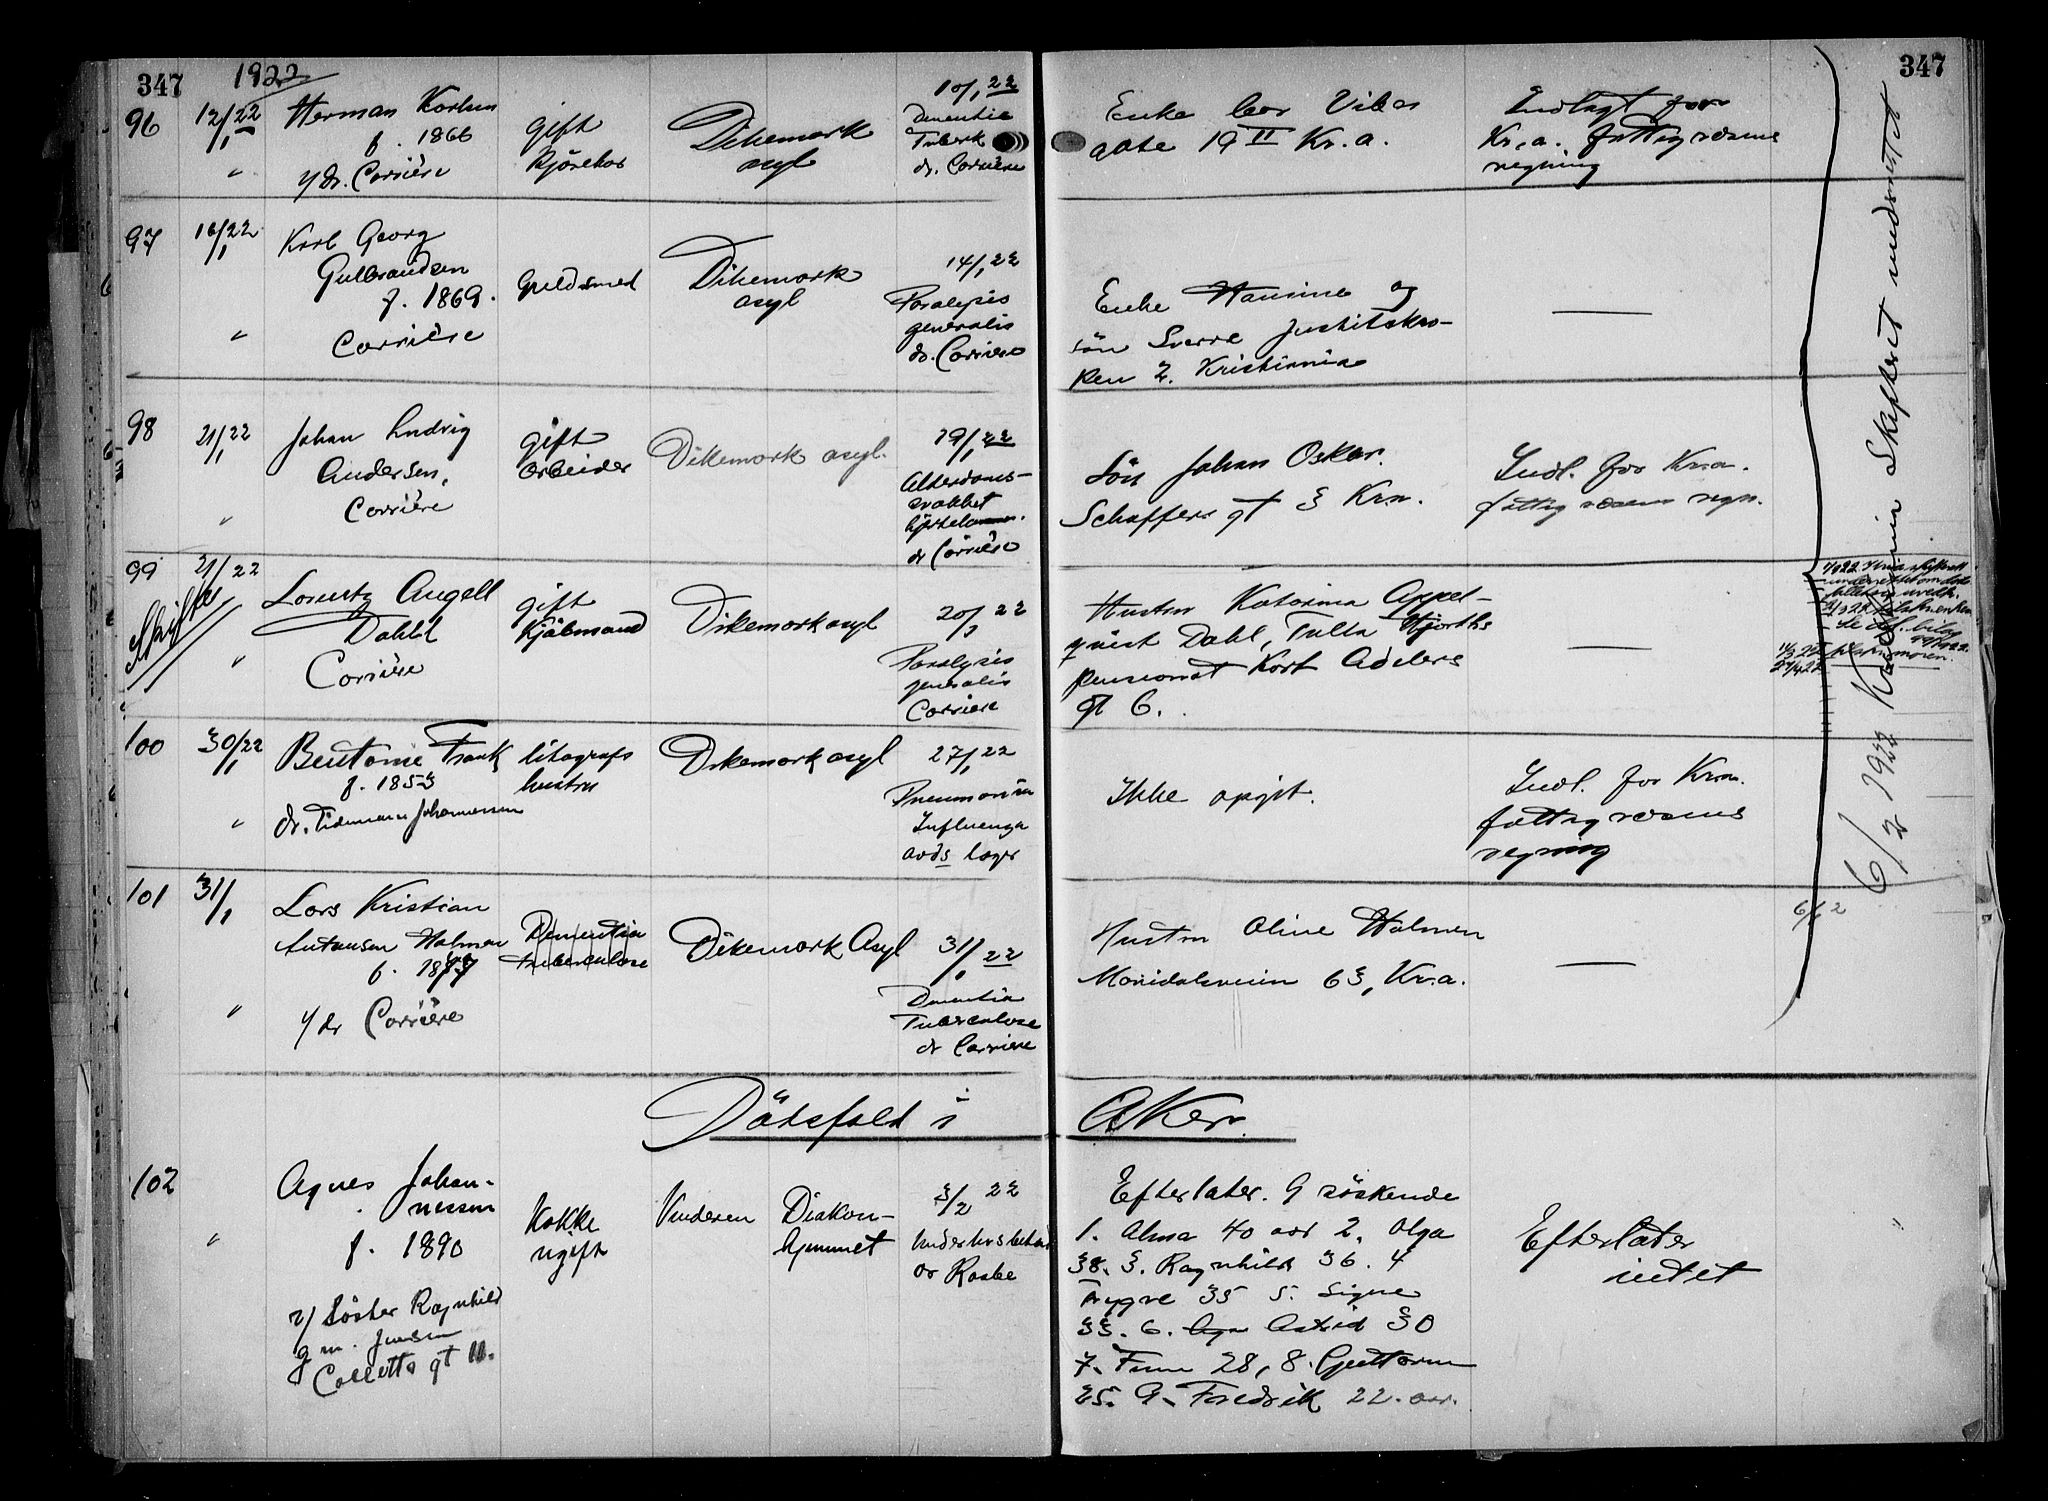 347 1922 347
96 12/1 22 Herman Karlsen gift Dikemark 10/1 22 Enke bor Vibes Indlagt for
f. 1866 kjørekar asyl Dementia gate 19 II Kr.a. Kr.a. fattigvæsens
" v/ dr. Corriére Tuberk regning
dr. Corriére
97 16/1 22 Karl Georg Guldsmed Dikemark 14/1 22 Enke Hansine og —
Gulbrandsen asyl Paralysis søn Sverre
f. 1869. generalis ken 2. Kristiania
" Corriére dr. Corriére
98 21/1 22 Johan Ludvig gift Dikemark asyl. 19/1 22 Søn Johan Oskar. Indl. for Kr.a.
Andersen, arbeider Alderdoms- Schaffers gt 3 Kra. fattigvæsens regn.
" Corriére svakhet
dr Corriére
99 21/1 22 Lorentz Angell gift Dikemark asyl 20/1 22 Hustru Katarina Appel- —
Skifte Dahl Kjøbmand Paralysis qvist Dahl, Tulla Hjorths
" Corriére generalis pensionat Kort Adelers
Corriére gt 6.
100 30/1 22 Bentonie Frank litografs Dikemark asyl 27/1 22 Ikke opgit. Indl. for Kra.
f. 1853 hustru Pneumonia fattigvæsens
" dr. Tidemann Johannessen Influenza regning
avds læge
101 31/1 Lars Kristian Dementia Dikemark Asyl 31/1 22 Hustru Oline Holmen —
Antonsen Holmen Tuberculose Dementia Maridalsveien 63, Kr.a.
f. 1877 Tuberculose
" v/ dr Corriére dr Corriére
6/2 1922 Skifteret underrettet
Dødsfald i Aker.
102 Agnes Johan- Kokke Vinderen Diakon- 3/2 22 Efterlater. 9 søskende Efterlater "
nessen ugift hjemmet dr Raabe 1. Alma 40 aar 2. Olga intet
" f. 1890 38. 3. Ragnhild 36. 4
v/ Søster Ragnhild Trygve 35 5. Signe
g. m. Jensen 33. 6. Astrid 30
Colletts gt 11. 7. Finn 28, 8. Guttorm
25. 9. Fredrik 22. aar.